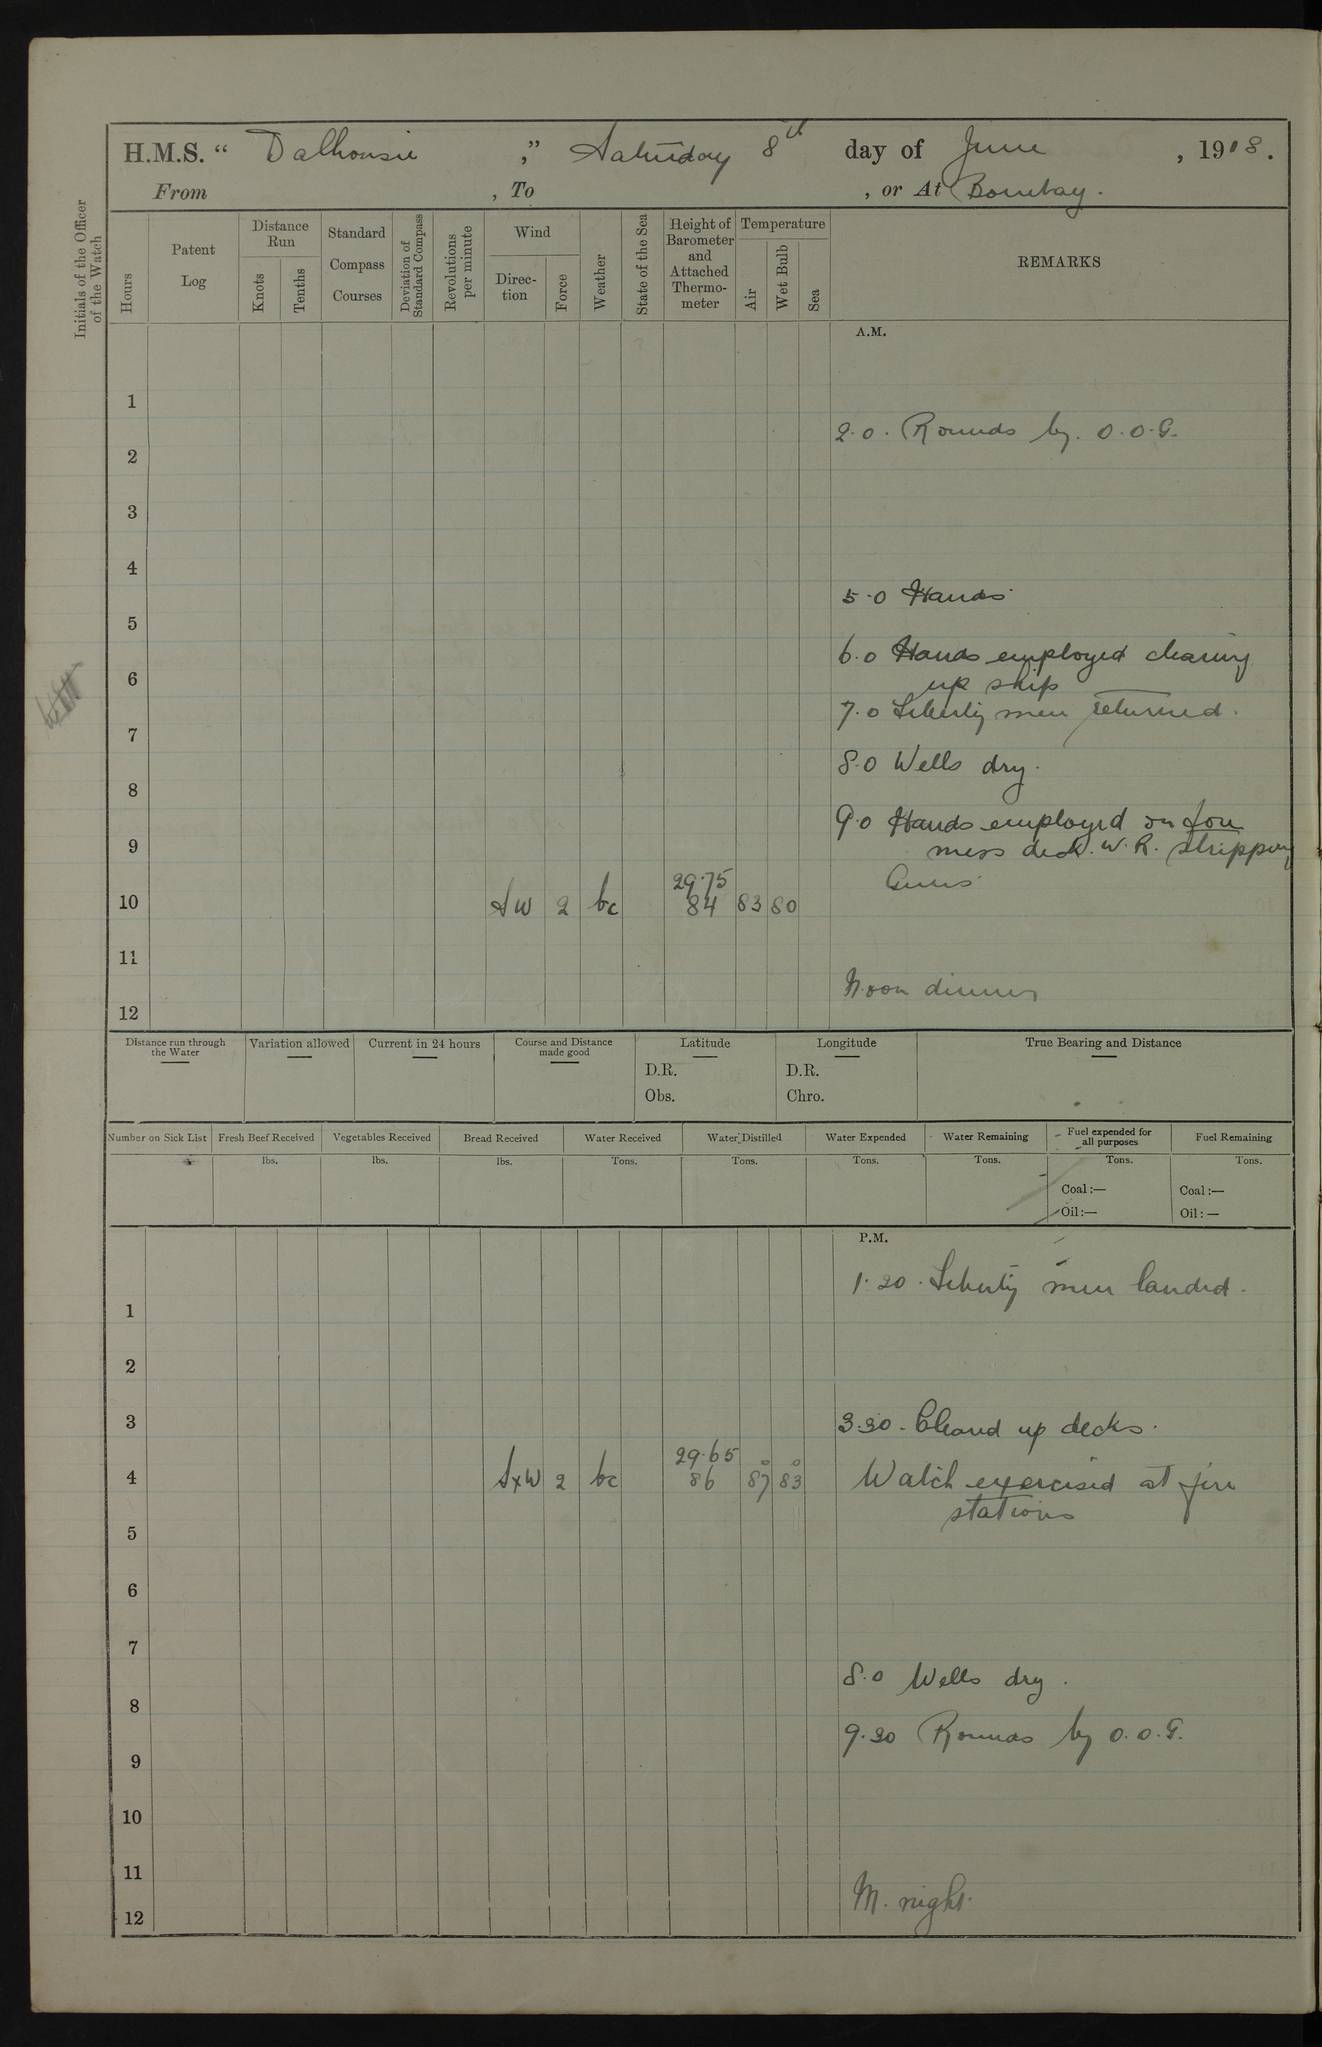 H.M.S. " Dalhousie ," Saturday 8th day of June , 1918.
From , To , or At Bombay.
Initials of the Officer
of the Watch
Hours
Patent
Log
Distance
Run
Knots
Tenths
Standard
Compass
Courses
Deviation of
Standard Compass
Revolutions
per minute
Wind
Direc-
tion
Force
Weather
State of the Sea
Height of
Barometer
and
Attached
Thermo-
meter
Temperature
Air
Wet Bulb
Sea
REMARKS
A.M.
1
2.0. Rounds by. O.O.G.
2
3
4
5.0 Hands.
5
6.0 Hands employed clearing
6
up ship
7.0 Liberty men returned.
7
8.0 Wells dry.
8
9.0 Hands employed on
9
mess deck. W.R. stripping
29.75
Guns
10 SW 2 bc 84 83 80
11
Noon dinner
12
Distance run through
the Water
Variation allowed
Current in 24 hours
Course and Distance
made good
Latitude
D.R.
Obs.
Longitude
D.R.
Chro.
True Bearing and Distance
Number on Sick List
Fresh Beef Received
lbs.
Vegetables Received
lbs.
Bread Received
lbs.
Water Received
Tons.
Water Distilled
Tons.
Water Expended
Tons.
Water Remaining
Tons.
Fuel expended for
all purposes
Tons.
Coal:—
Oil:—
Fuel Remaining
Tons.
Coal:—
Oil:—
P.M.
1.20. Liberty men landed.
1
2
3
3.30. Cleand up decks.
29.65
4 SxW 2 bc 86 87 83 Watch exercised at fire
stations
5
6
7
8.0 Wells dry.
8
9.30 Rounds by O.O.G.
9
10
11
M. night.
12